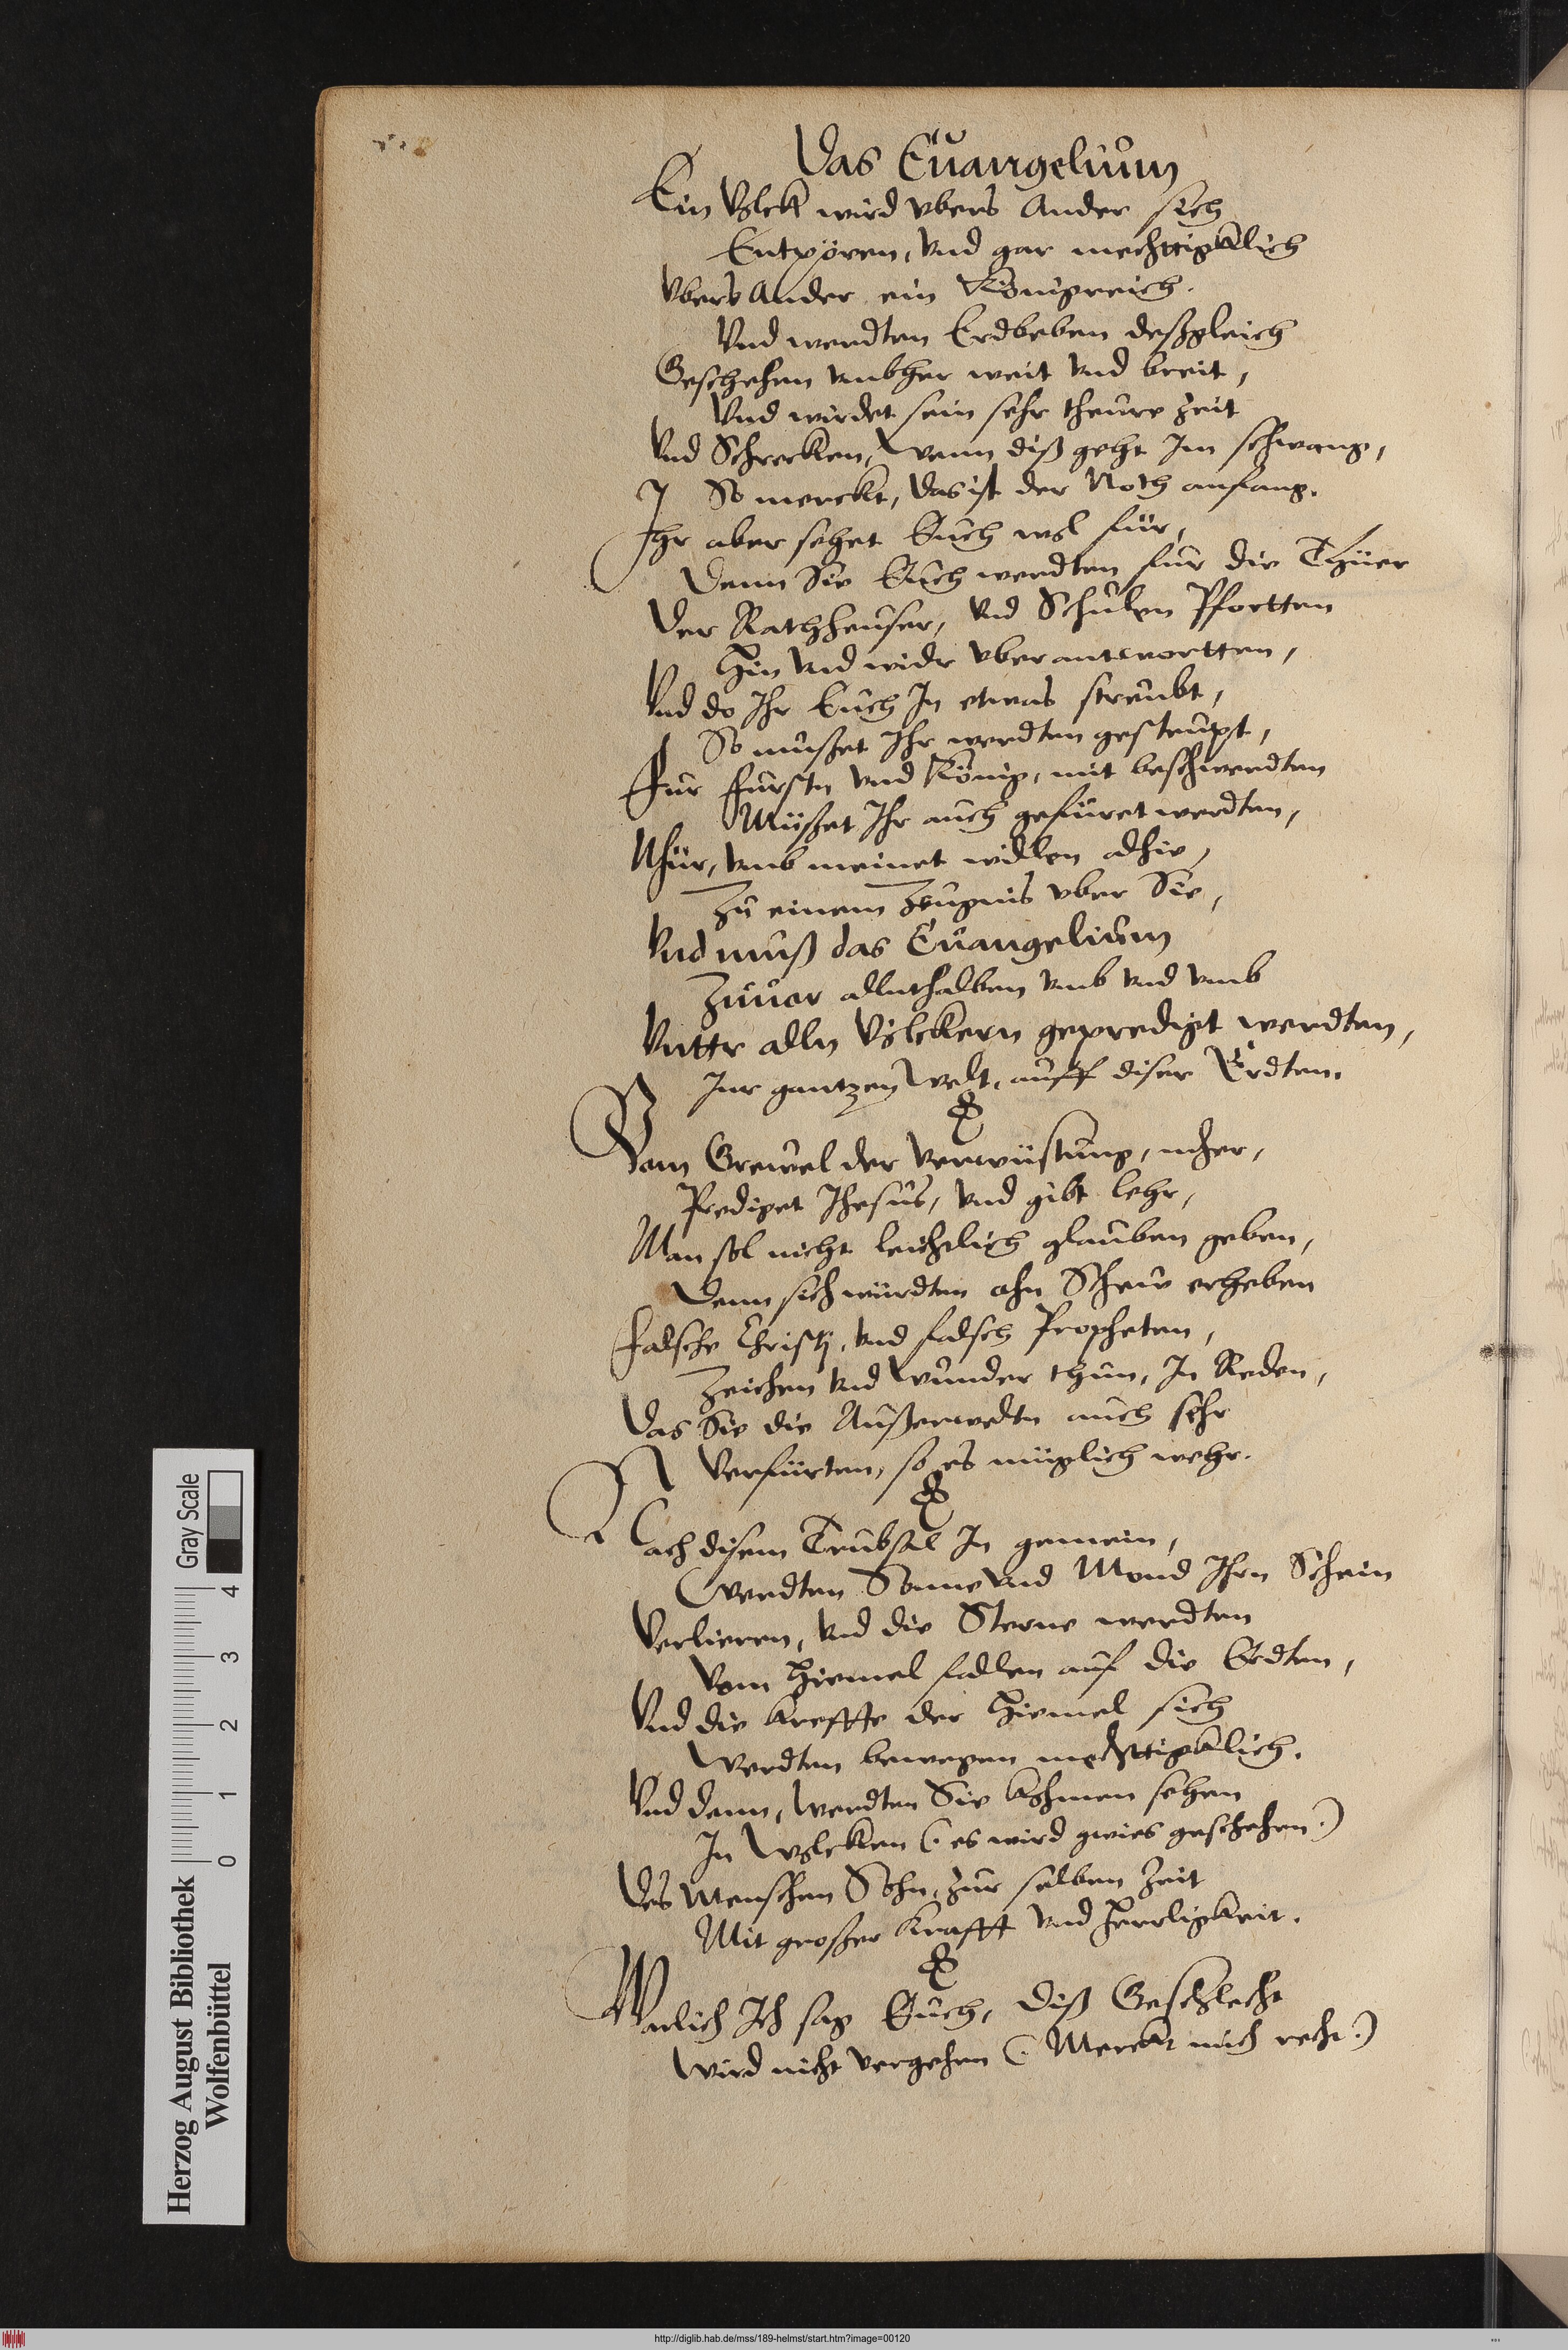 Das Euangelium
Ein Volck wird vbers Ander sich
Entpören, vnd gar mechttigklich
Vbers Ander ein Königreich.
Vnd werdten Erdbeben deßgleich
Geschehen vmbher weit vnd breit,
Vnd wirdet sein sehr theure Zeit
Vnd Schrecken, Wenn diß geht Im schwang,
So merckt, das ist der Noth anfang.
Ihr aber sehet Euch wol für,
Denn Sie Euch werdten für die Thüer
Der Rathheuser, vnd Schulen Pfortten
Hin vnd widr vberantwortten,
Vnd do Ihr Euch In etwas streubt,
So mußet Ihr werdten gesteupt,
Fur Furstn vnd König, mit beschwerdten
Müßet Ihr auch gefüret werdten,
Nhür, vmb meinet willen alhie,
Zu einem Zeugnis vber Sie,
Vnd muß das Euangelium
Zuuor allnthalben vmb vnd vmb
Vnttr alln Völckern geprediget werdten,
Inr gantzen Welt, auff diser Erdten.
Vom Grewel der verwüstung, mher,
Prediget Ihesus, vnd gibt lehr,
Man sol nicht leichtlich glauben geben,
Denn sich würdten ohn Schew erheben
Falsche Christj, vnd falsch Propheten,
Zeichen vnd Wunder thun, In Reden,
Das Sie die Außerweltn auch sehr
Verfürten, so es müglich wehr.
Nach disem Trubsal In gemein,
Werdten Sonne vnd Mond Ihrn Schein
Verlieren, vnd die Sterne werdten
Vom Hiemel fallen auf die Erdten,
Vnd die kreffte der Hiemel sich
Werdten bewegen mechttigklich.
Vnd denn, Werdten Sie kohmen sehen
In Wolcken (: es wird gwies geschehen :)
Des Menschen Sohn, zur selben Zeit
Mit großer krafft vnd Herrligkeit.
Warlich Ich sag Euch, diß Geschlecht
Wird nicht vergehen (: Merckt mich recht :)
Herzog August Bibliothek
Wolfenbüttel
Gray Scale
0 1 2 3 4
http://diglib.hab.de/mss/189-helmst/start.htm?image=00120